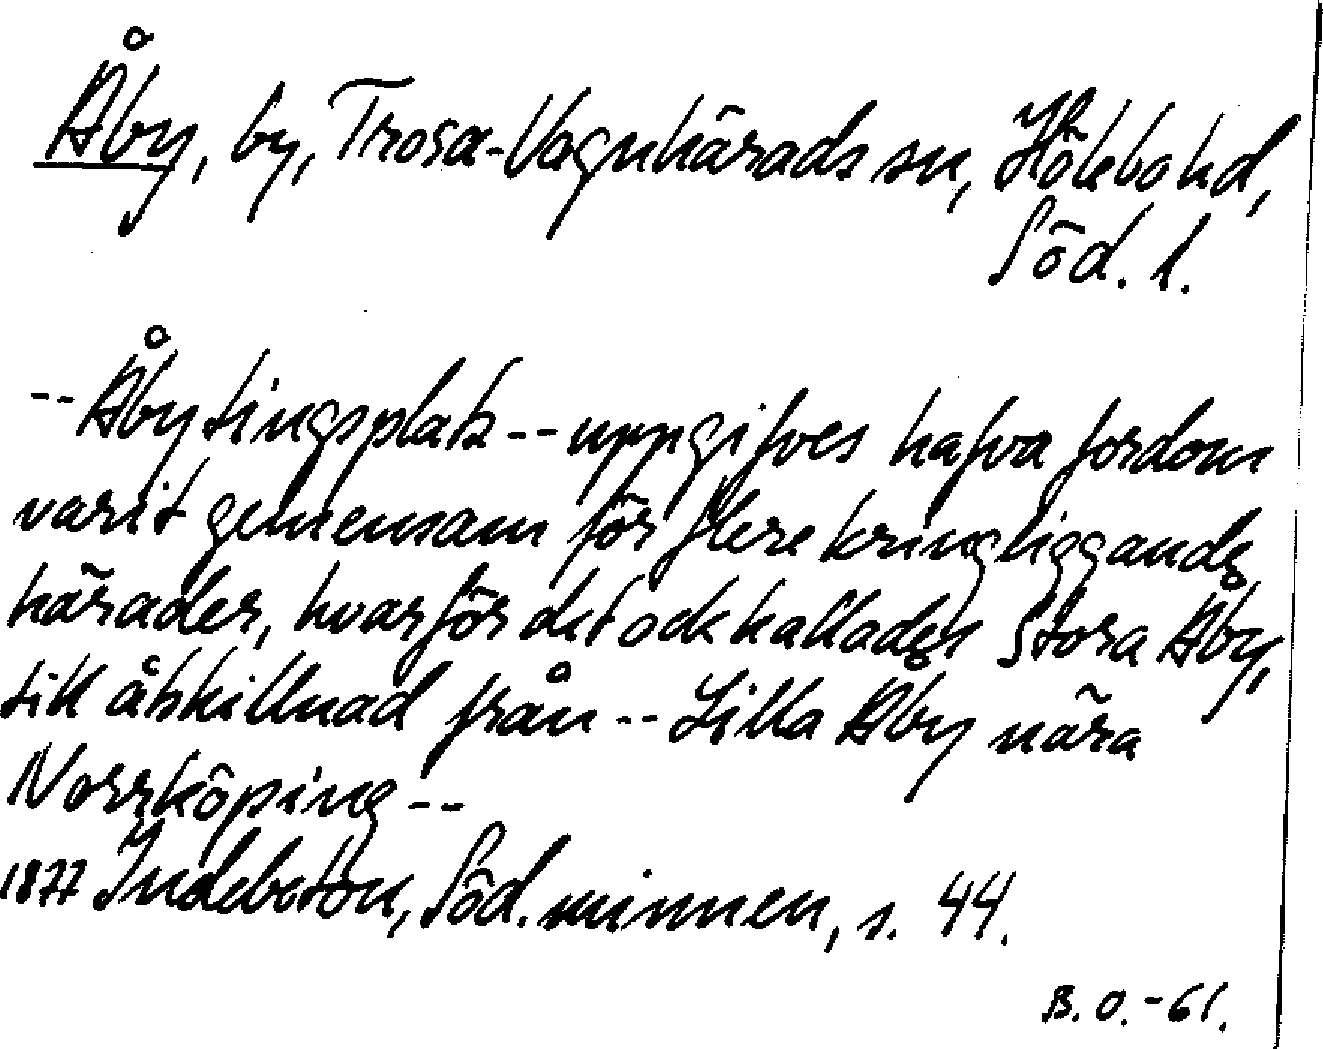 Åby, by, Trosa-Vagnhärads sn, Hölebo hd,
Söd. l.
-- Åby tingsplats -- uppgifves hafva fordom
varit gemensam för flere kringliggande
härader, hvarför det ock kallades Stora Åby,
till åtskillnad från -- Lilla Åby nära
Norrköping --
1877 Indebetou, Söd. minnen, s. 44.
B. O. -61.